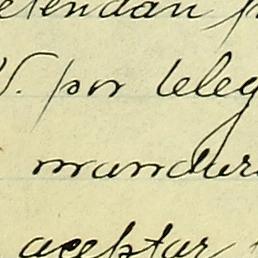 etendan
V. por teleg
mandur
aceptar